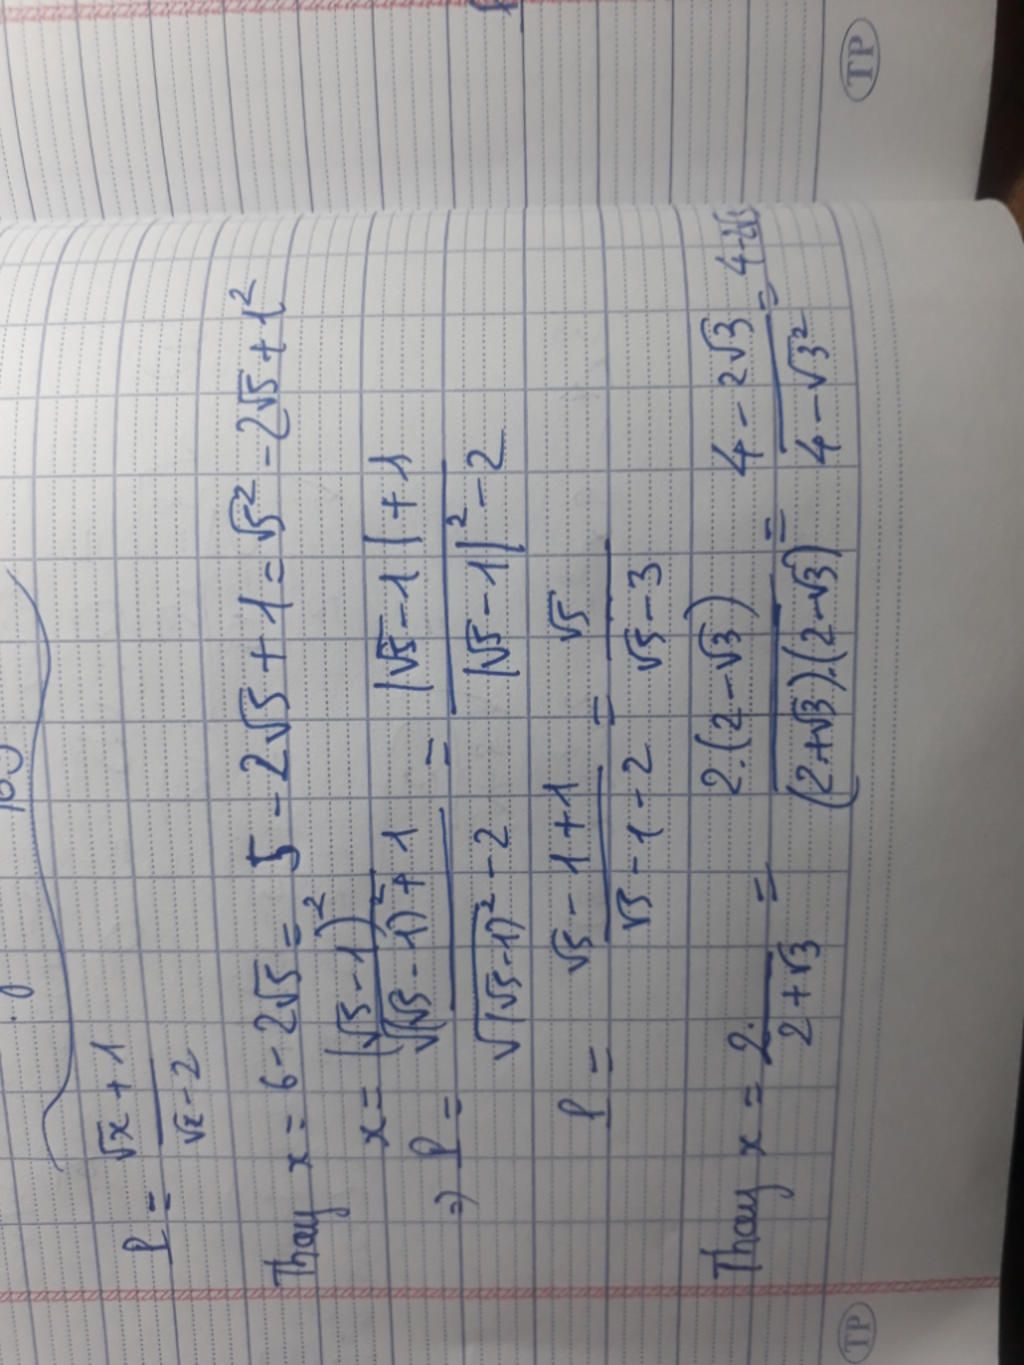 P = (√x + 1)/(√x - 2)
Thay x = 6 - 2√5 = 5 - 2√5 + 1 = √5² - 2√5 + 1²
x = (√5 - 1)²
=> P = (√(√5 - 1)² + 1)/(√(√5 - 1)² - 2) = (|√5 - 1| + 1)/(|√5 - 1|² - 2)
P = (√5 - 1 + 1)/(√5 - 1 - 2) = √5/(√5 - 3)
Thay x = 2/(2 + √3) = (2.(2 - √3))/((2 + √3).(2 - √3)) = (4 - 2√3)/(4 - √3²) = 4 - 2√3
TP
TP